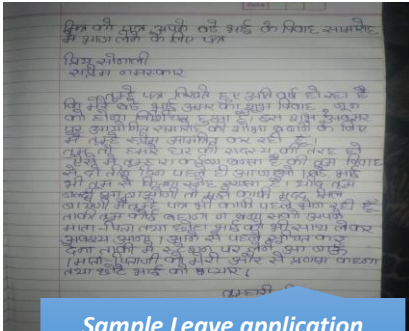 मित्र को पत्र अपके बडे भाई के विवाह समारोह
में भाग लेने के लिए पत्र
प्रिय सोनाली
सप्रेम नमस्कार
तुम्हे पत्र लिखते हुए अति हर्ष हो रहा है
कि मेरे बडे भाई अमर का शुभ विवाह जून
को होना निश्चित हुआ है। इस शुभ अवसर
पर आयोजित समारोह की शोभा बढाने के लिए
मैं तुम्हे आमंत्रित कर रही हूँ
तुम तो हमारे घर की सदस्य की तरह हो
ऐसे में तुम्हारा कर्तव्य बनता है की तुम विवाह
से दो तीन दिन पहले ही आ जाओ। बडे भाई
भी तुम से कितना स्नेह रखते है। यदि तुम
जल्दी आ जाओगी तो मुझे काफी मदद मिल
जायेगी मैं तुम्हे पत्र भी काफी पहले भेज रही हूँ
ताकि तुम कोई बहाना न बना सको अपने
माता-पिता तथा छोटे भाई को भी साथ लेकर
अवश्य आना। आने से पहले सूचित कर
देना ताकी मैं स्टेशन पर लेने आ जाऊँ
। माता-पिताजी को मेरी और से प्रणाम कहना
तथा छोटे भाई को प्यार।
तुम्हारी
Sample Leave application